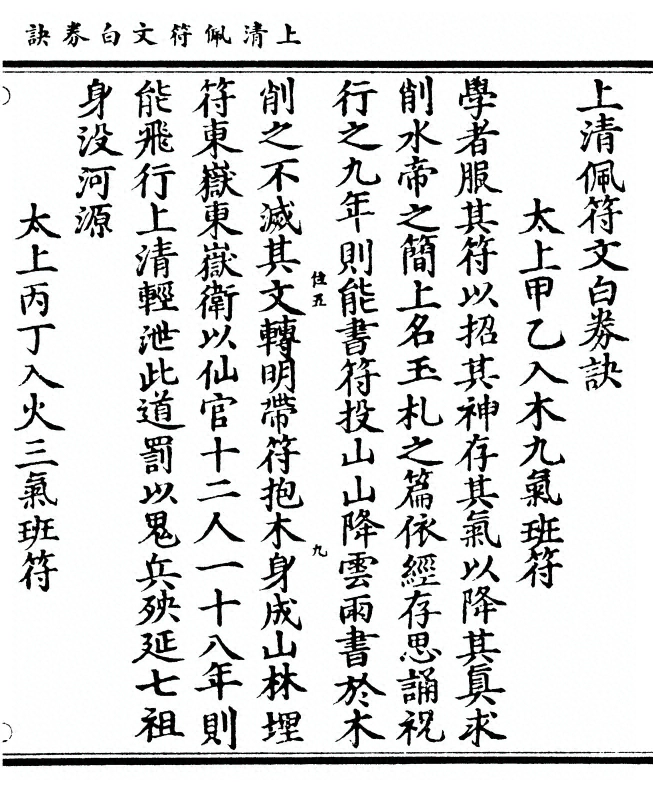 上清佩符文白券訣
上清佩符文白券訣
太上甲乙入木九氣班符
學者服其符以招其神存其氣以降其眞求
削水帝之簡上名玉札之篇依經存思誦祝
行之九年則能書符投山山降雲雨書於木
位五
九
削之不滅其文轉明帶符抱木身成山林埋
符東嶽東嶽衛以仙官十二人一十八年則
能飛行上清輕泄此道罰以鬼兵殃延七祖
身没河源
太上丙丁入火三氣班符